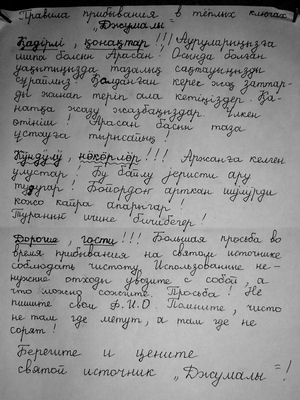 Правила прибывания в тёплых ключах
„Джумалы"
Қадірлі, қонақтар!!! Ауруларыңызға
шипа болсын Арасан! Осында болған
уақытыңызда тазалық сақтауыңызды
сұраймыз! Қолданған керек жақ заттар-
ды жинап теріп ала кетіңіздер. Қа-
натқа жазу жазбаңыздар. Үлкен
өтініш! Арасан басын таза
ұстауға тырысайық!
Кӱндӱлӱ, нӧкӧрлӧр!!! Аржанга келген
улустар! Бу байлу јеристи ару
тудугар! Бойордоҥ арткан шӱӱрди
кожо кайра апарыгар!
Тураныҥ ичине бичибегер!
Дорогие, гости!!! Большая просьба во
время прибывания на святом источнике
соблюдать чистоту. Использованные не-
нужные отходы увозите с собой, а
что можно сожгите. Просьба! Не
пишите свои Ф.И.О. Помните, чисто
не там где метут, а там где не
сорят!
Берегите и цените
святой источник „Джумалы"!